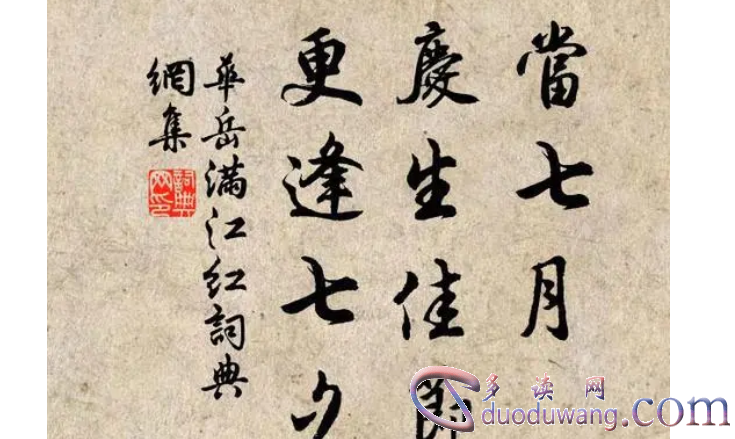 當七月
慶生佳節
更逢七夕
華岳满江红詞典
網集
詞典网印
多读网
duoduwang.com